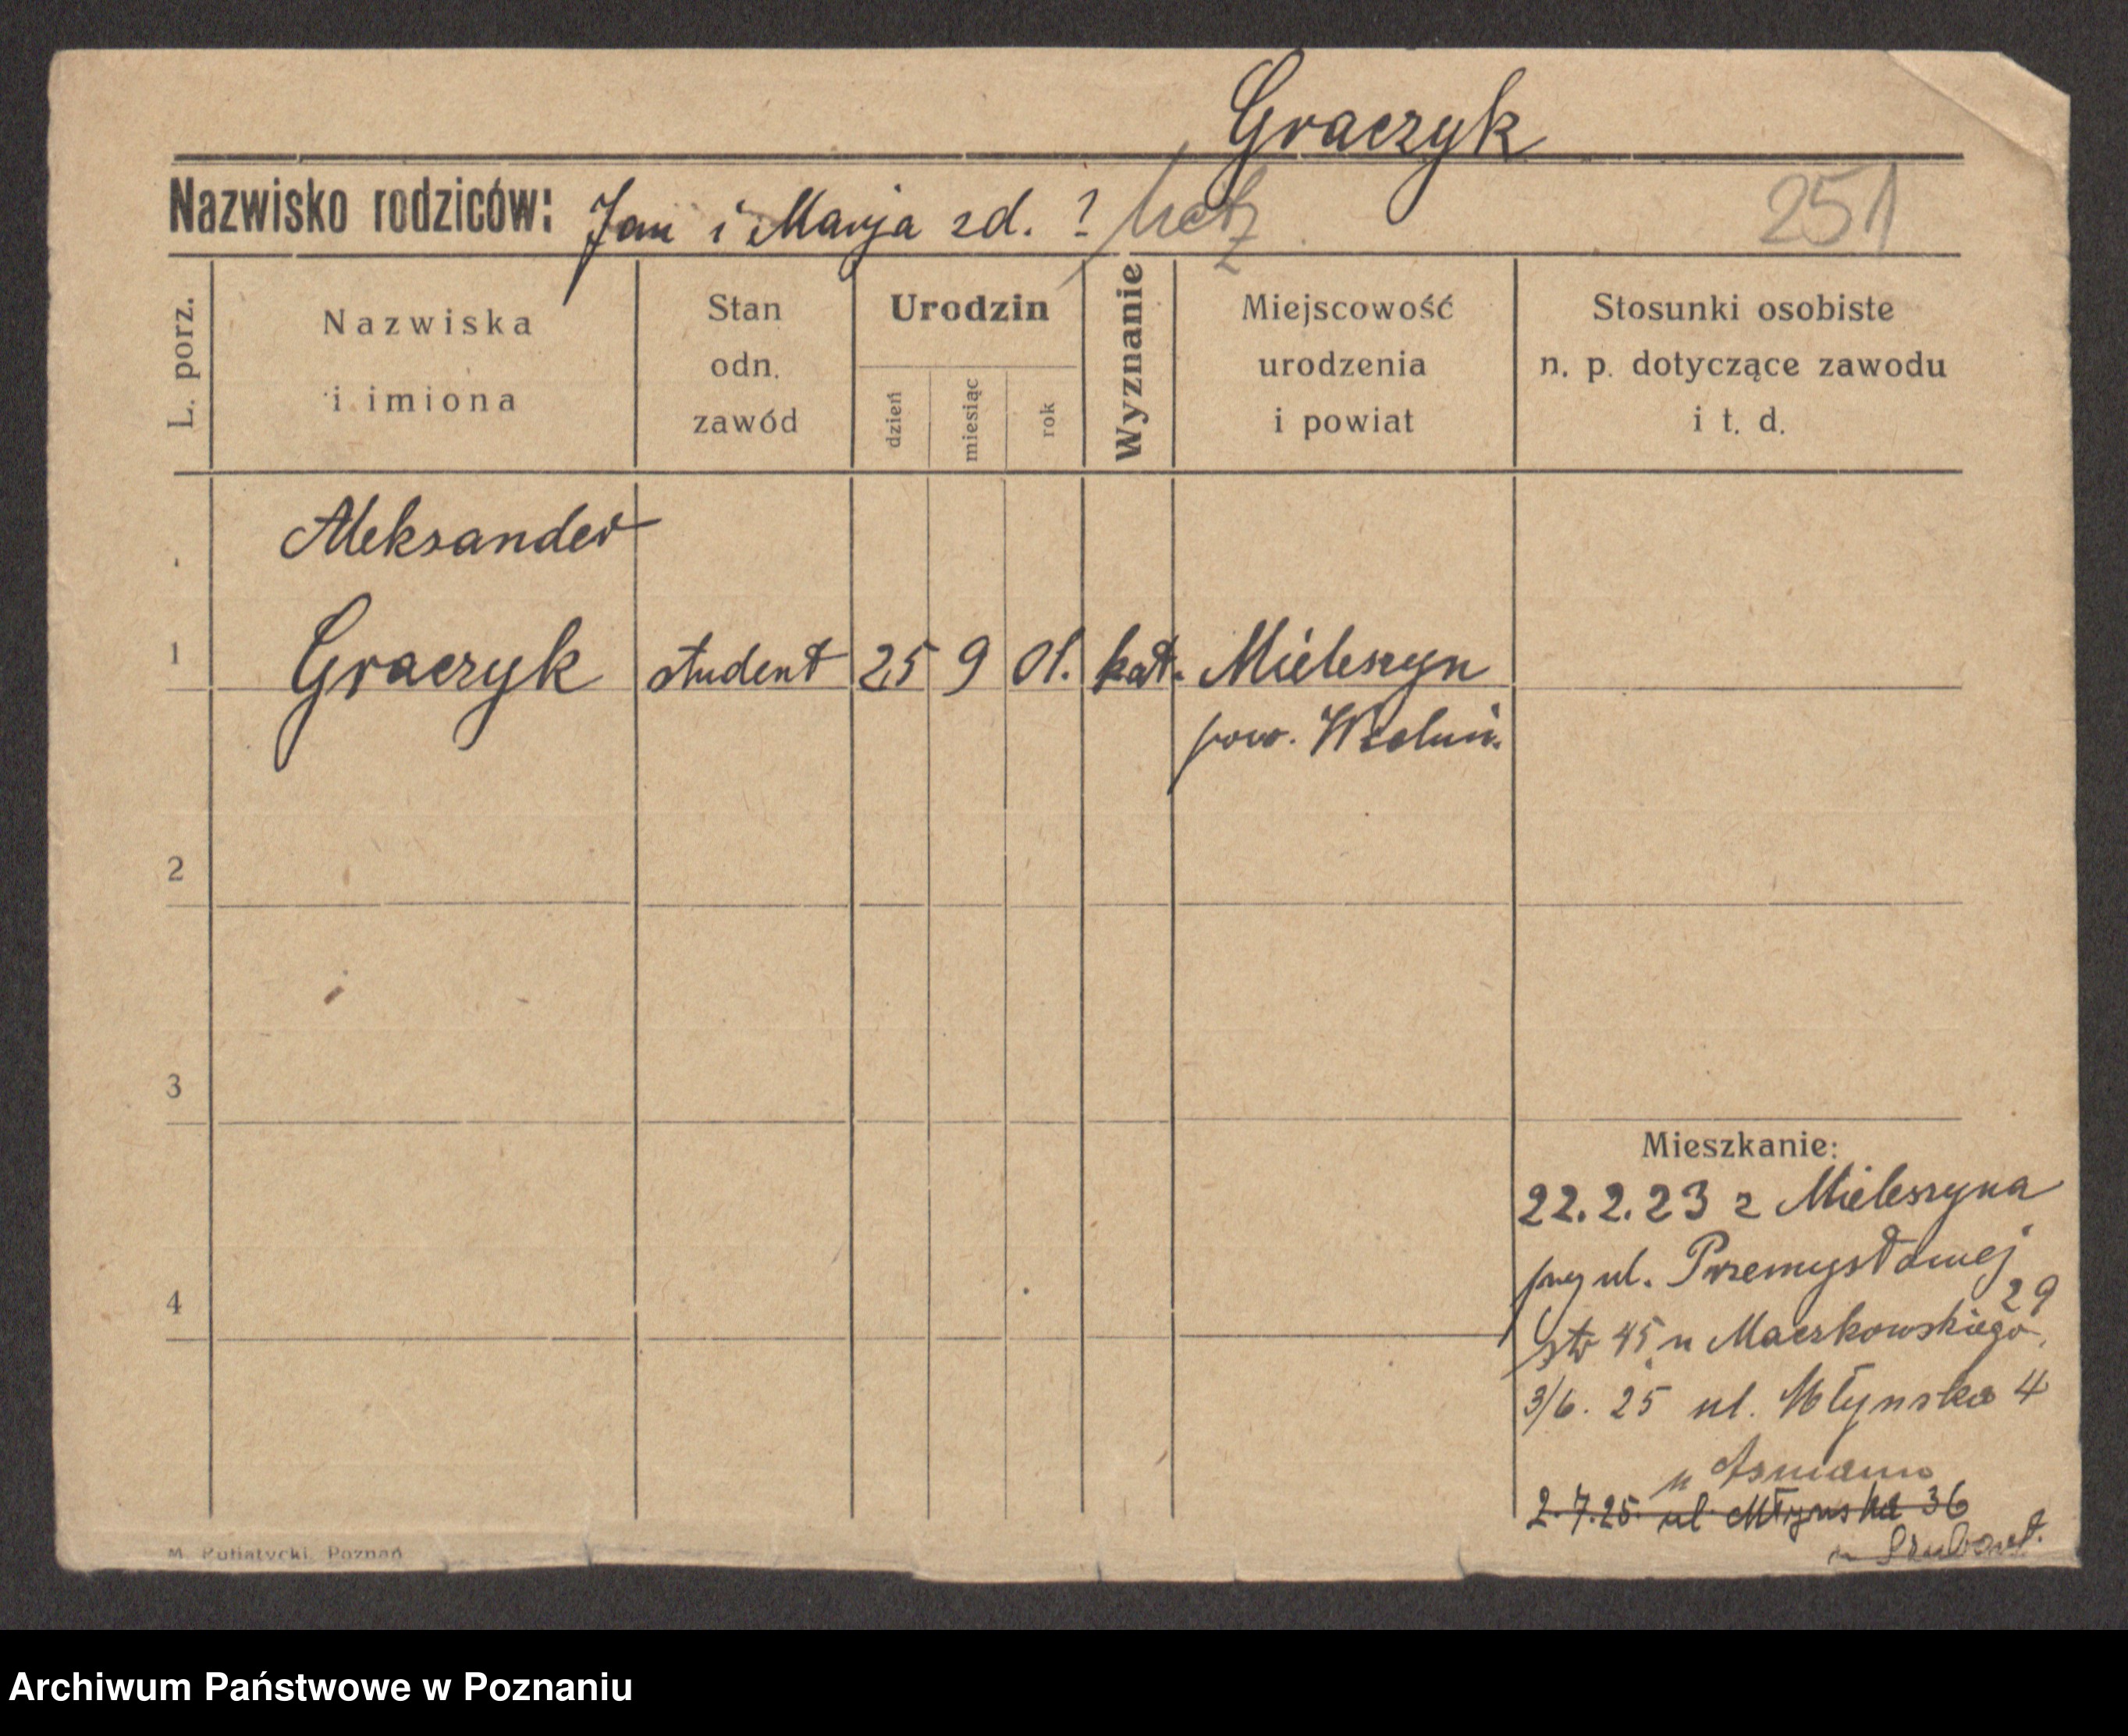 Graczyk
Nazwisko rodziców: Jan i Marja zd. ?
251
L. porz.
Nazwiska
i imiona
Stan
odn.
zawód
Urodzin
dzień
miesiąc
rok
Wyznanie
Miejscowość
urodzenia
i powiat
Stosunki osobiste
n. p. dotyczące zawodu
i t. d.
Aleksander
1 Graczyk student 25 9 01. kat. Mieleszyn
pow. Wieluń.
2
3
4
Mieszkanie:
22.2.23 z Mieleszyna
przy ul. Przemysłowej
29
45 u Maczkowskiego.
3/6. 25 ul. Młyńska 4
u
2.7.25 ul Młyńska 36
M. Putiatycki, Poznań
Archiwum Państwowe w Poznaniu